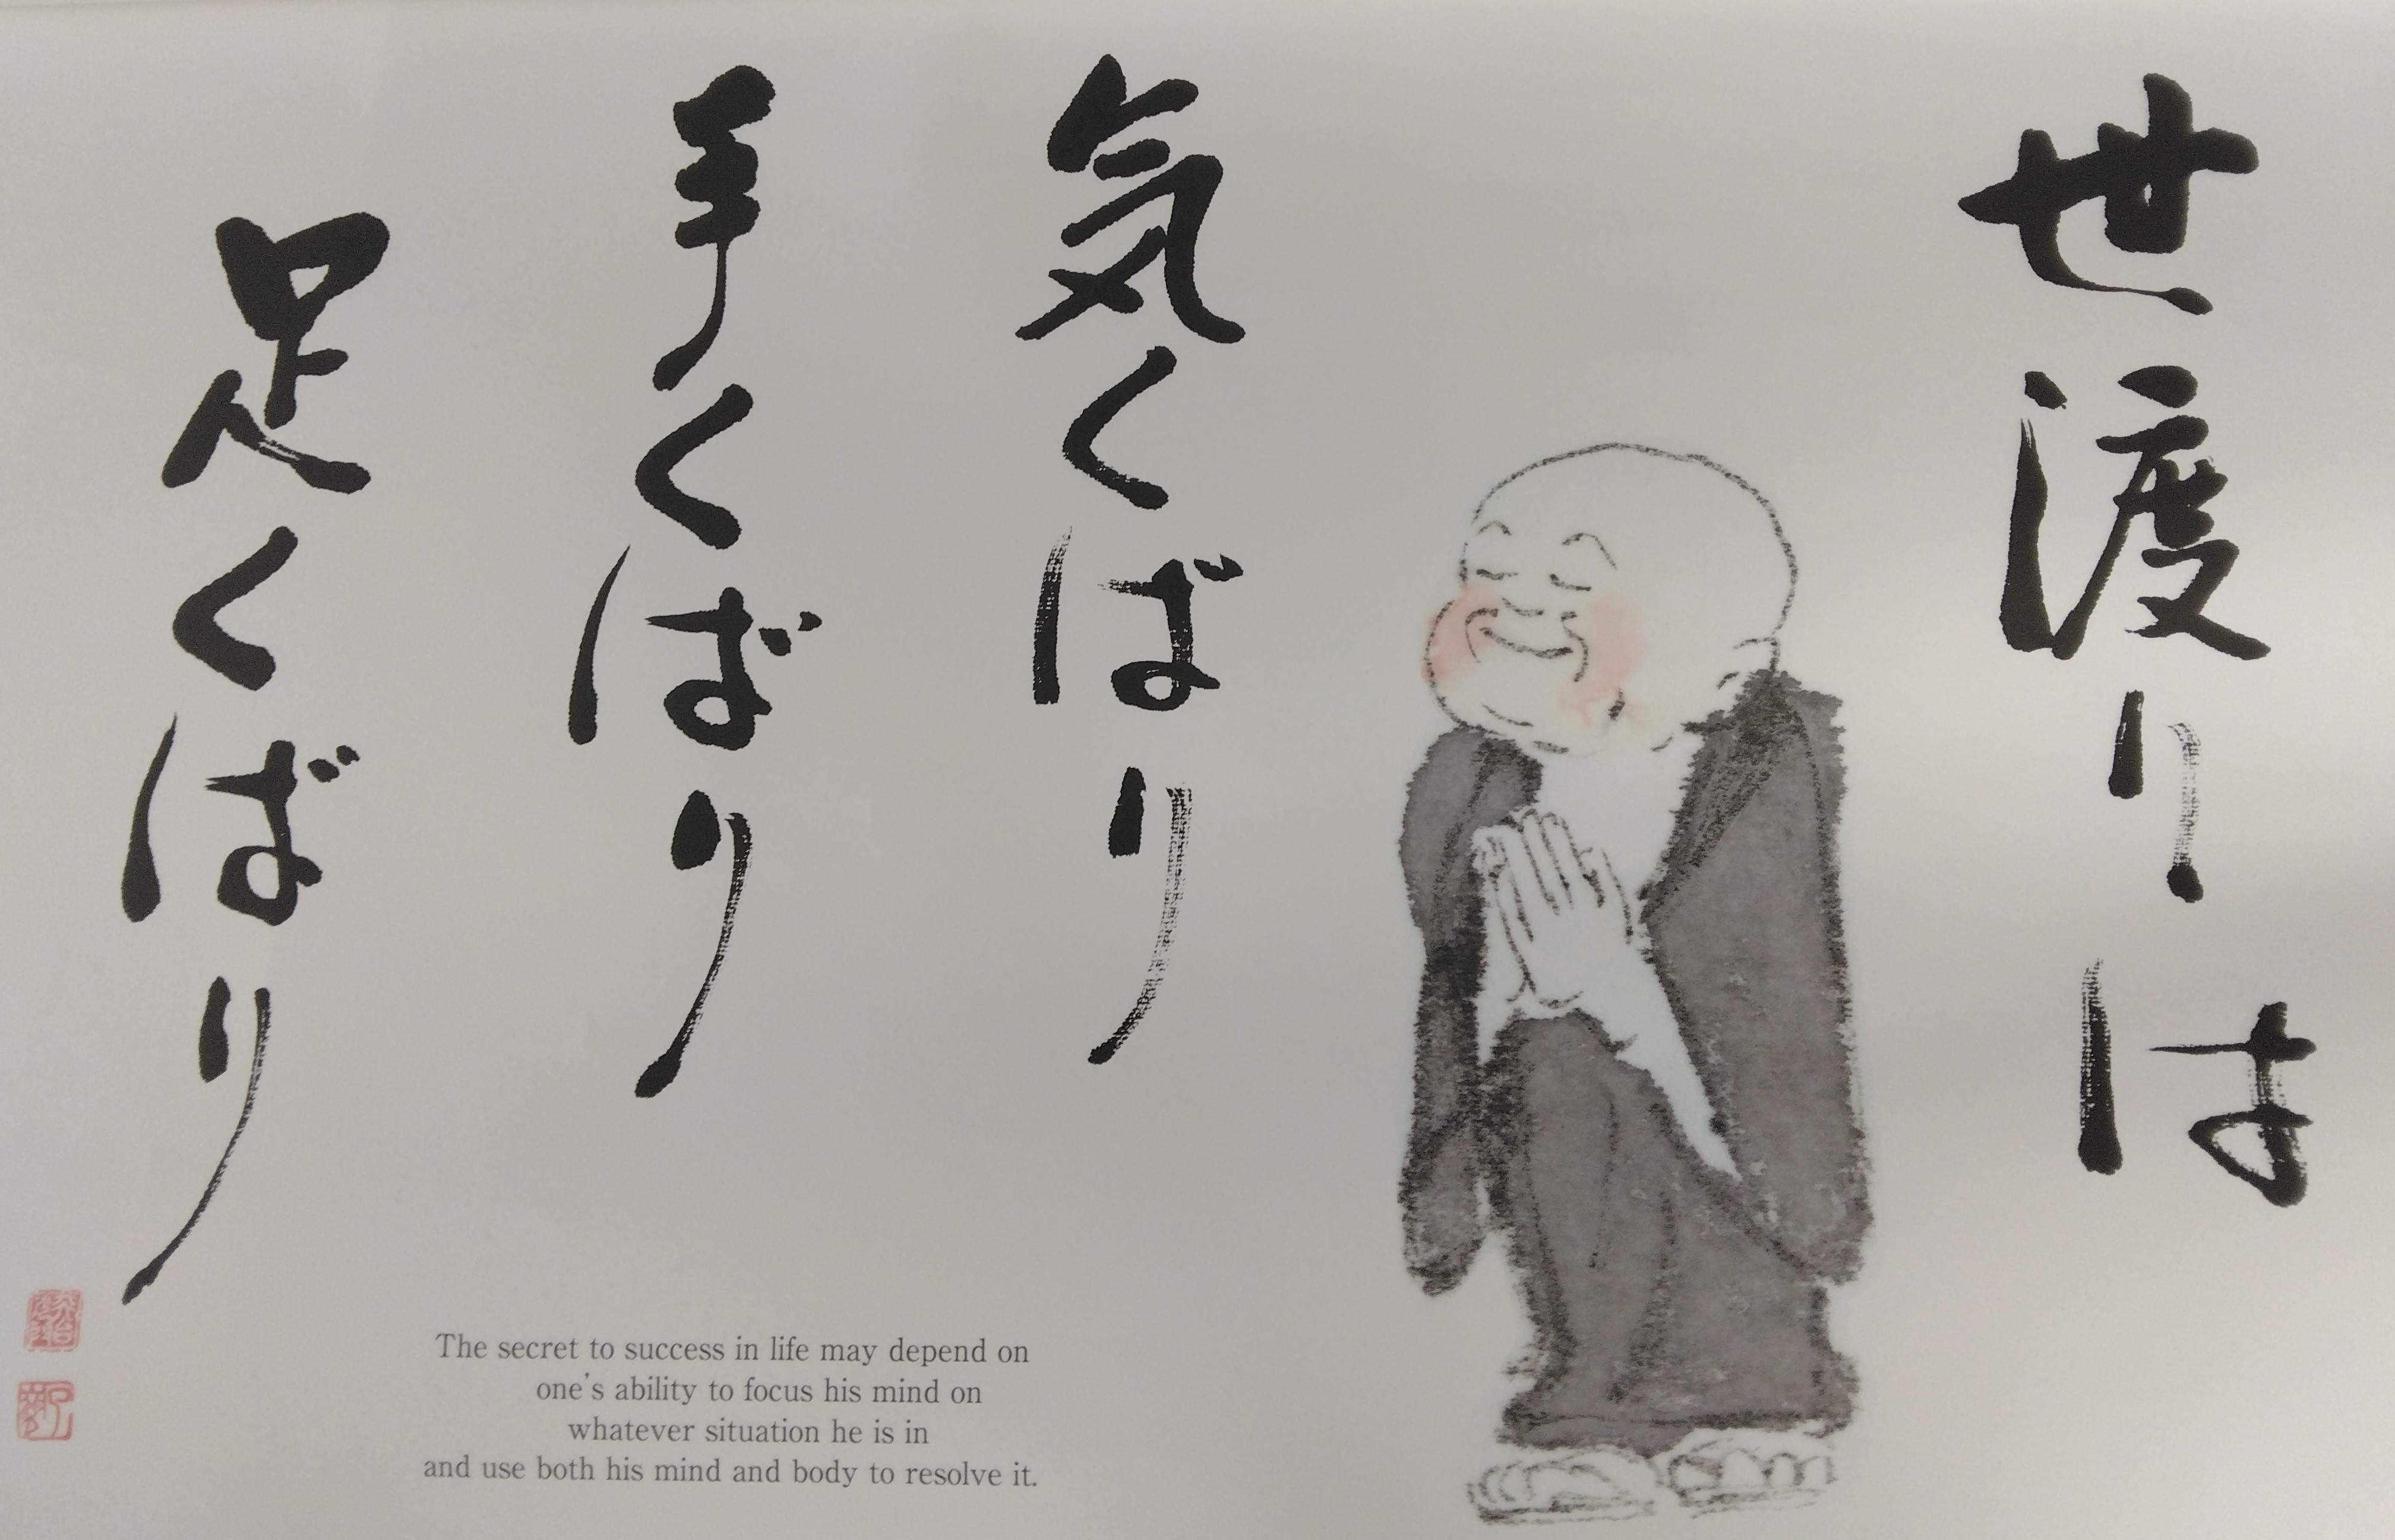 世渡りは
気くばり
手くばり
足くばり
The secret to success in life may depend on
one's ability to focus his mind on
whatever situation he is in
and use both his mind and body to resolve it.